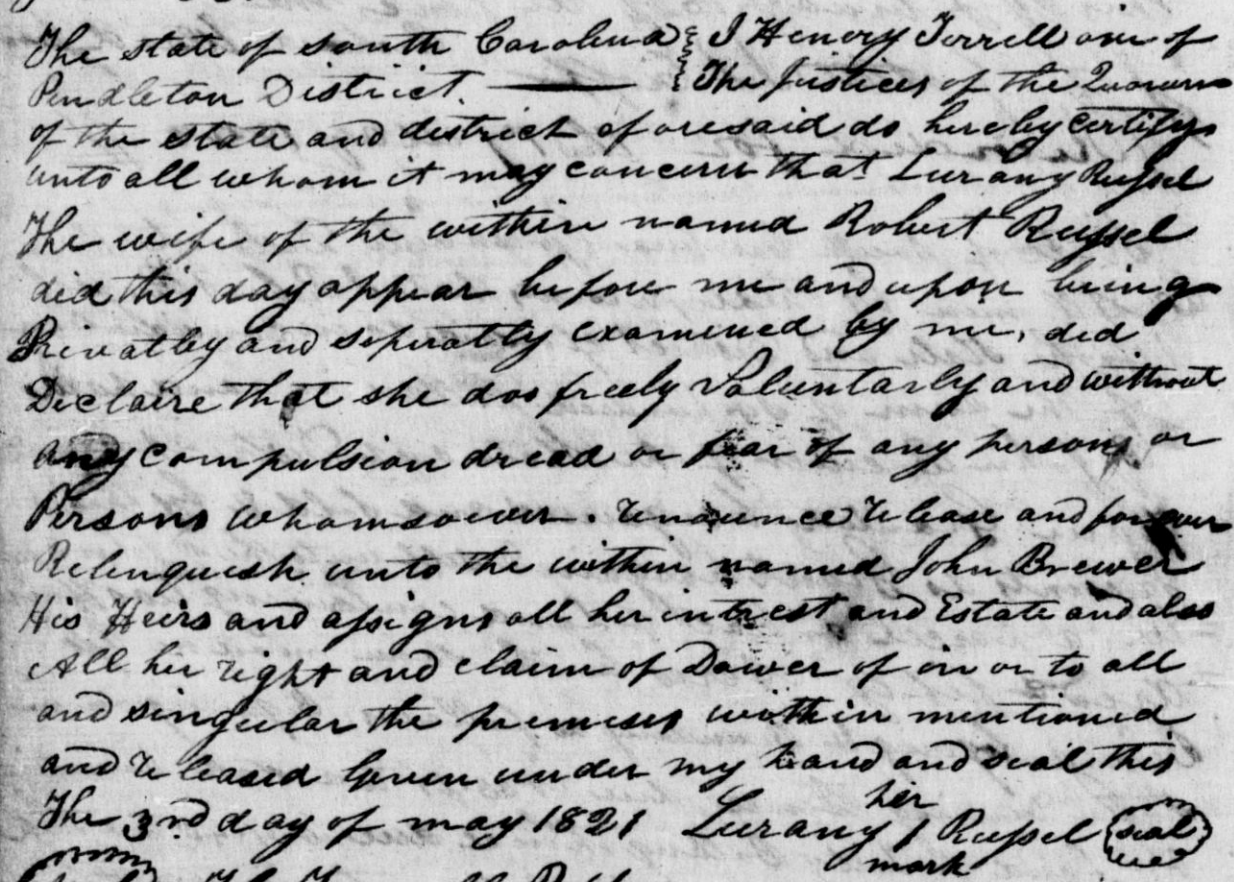 The state of South Carolina } I Henry Terrell one of
Pendleton District. — } The Justices of the Quorum
of the state and district aforesaid do hereby certify
unto all whom it may concern that Lurany Russel
The wife of the within named Robert Russel
did this day appear before me and upon being
Privatley and seperatly examened by me, did
Declaire that she dos freely Voluntarly and without
any compulsion dread or fear of any persons or
Persons whomsoever. renounce release and forever
Relenquish unto the within named John Brewer
His Heirs and assigns all her intrest and Estate and also
All her right and claim of Dower of in or to all
and singular the premeses within mentioned
and released Given under my hand and seal this
The 3rd day of may 1821 Lurany her / mark Russel seal